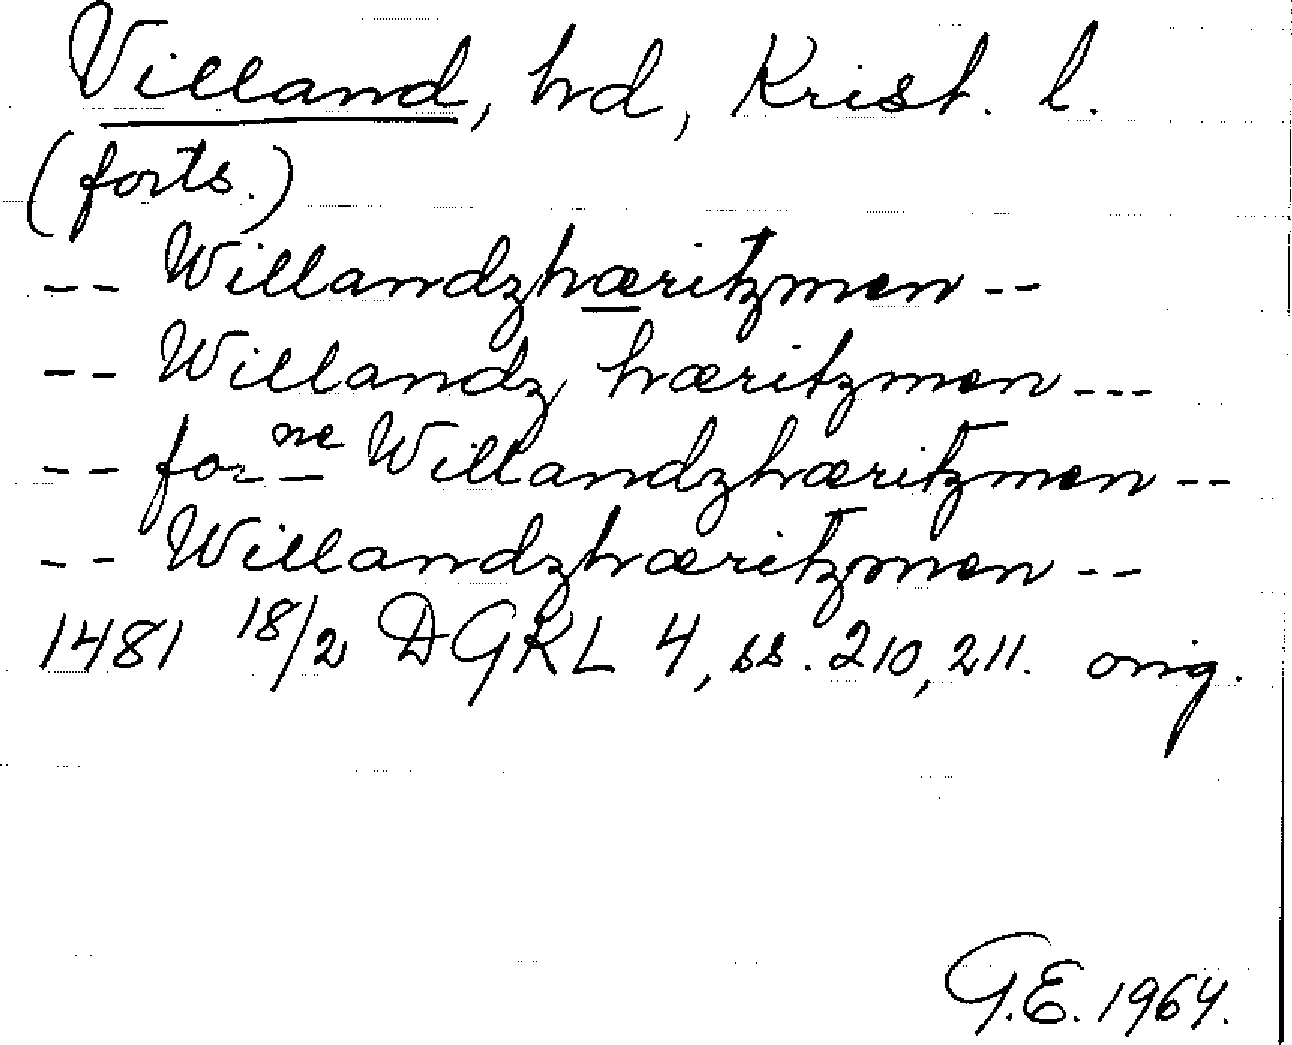 Villand, hd, Krist. l.
(forts.)
-- Willandzhæritzmen --
-- Willandz hæritzmen ---
-- forne Willandzhæritzmen --
-- Willandzhæritzmen --
1481 18/2 DGKL 4, ss. 210, 211. orig.
G.E. 1964.